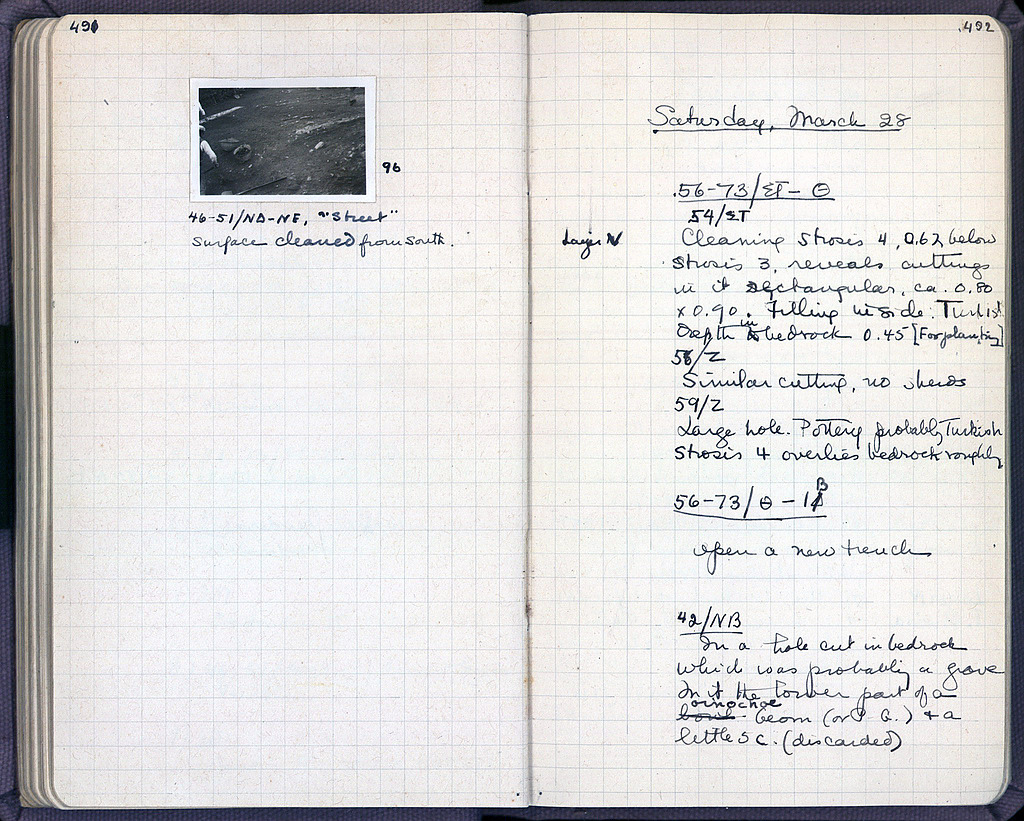 491
96
46-51/ΝΔ-ΝΕ, "Street"
surface cleaned from south.
492
Saturday, March 28
56-73/ΣΤ-Θ
54/ΣΤ
Layer V
Cleaning strosis 4, 0.62 below
strosis 3, reveals cuttings
in it rectangular, ca. 0.80
x 0.90. Filling inside: Turkish
Depth in bedrock 0.45 [For planting]
58/Z
Similar cutting, no sherds
59/Z
Large hole. Pottery probably Turkish
Strosis 4 overlies bedrock roughly
56-73/Θ-ΙΒ
open a new trench
42/ΝΒ
In a hole cut in bedrock
which was probably a grave
In it the lower part of a
oinochoe
bowl geom (or P. G.) + a
little sc. (discarded)